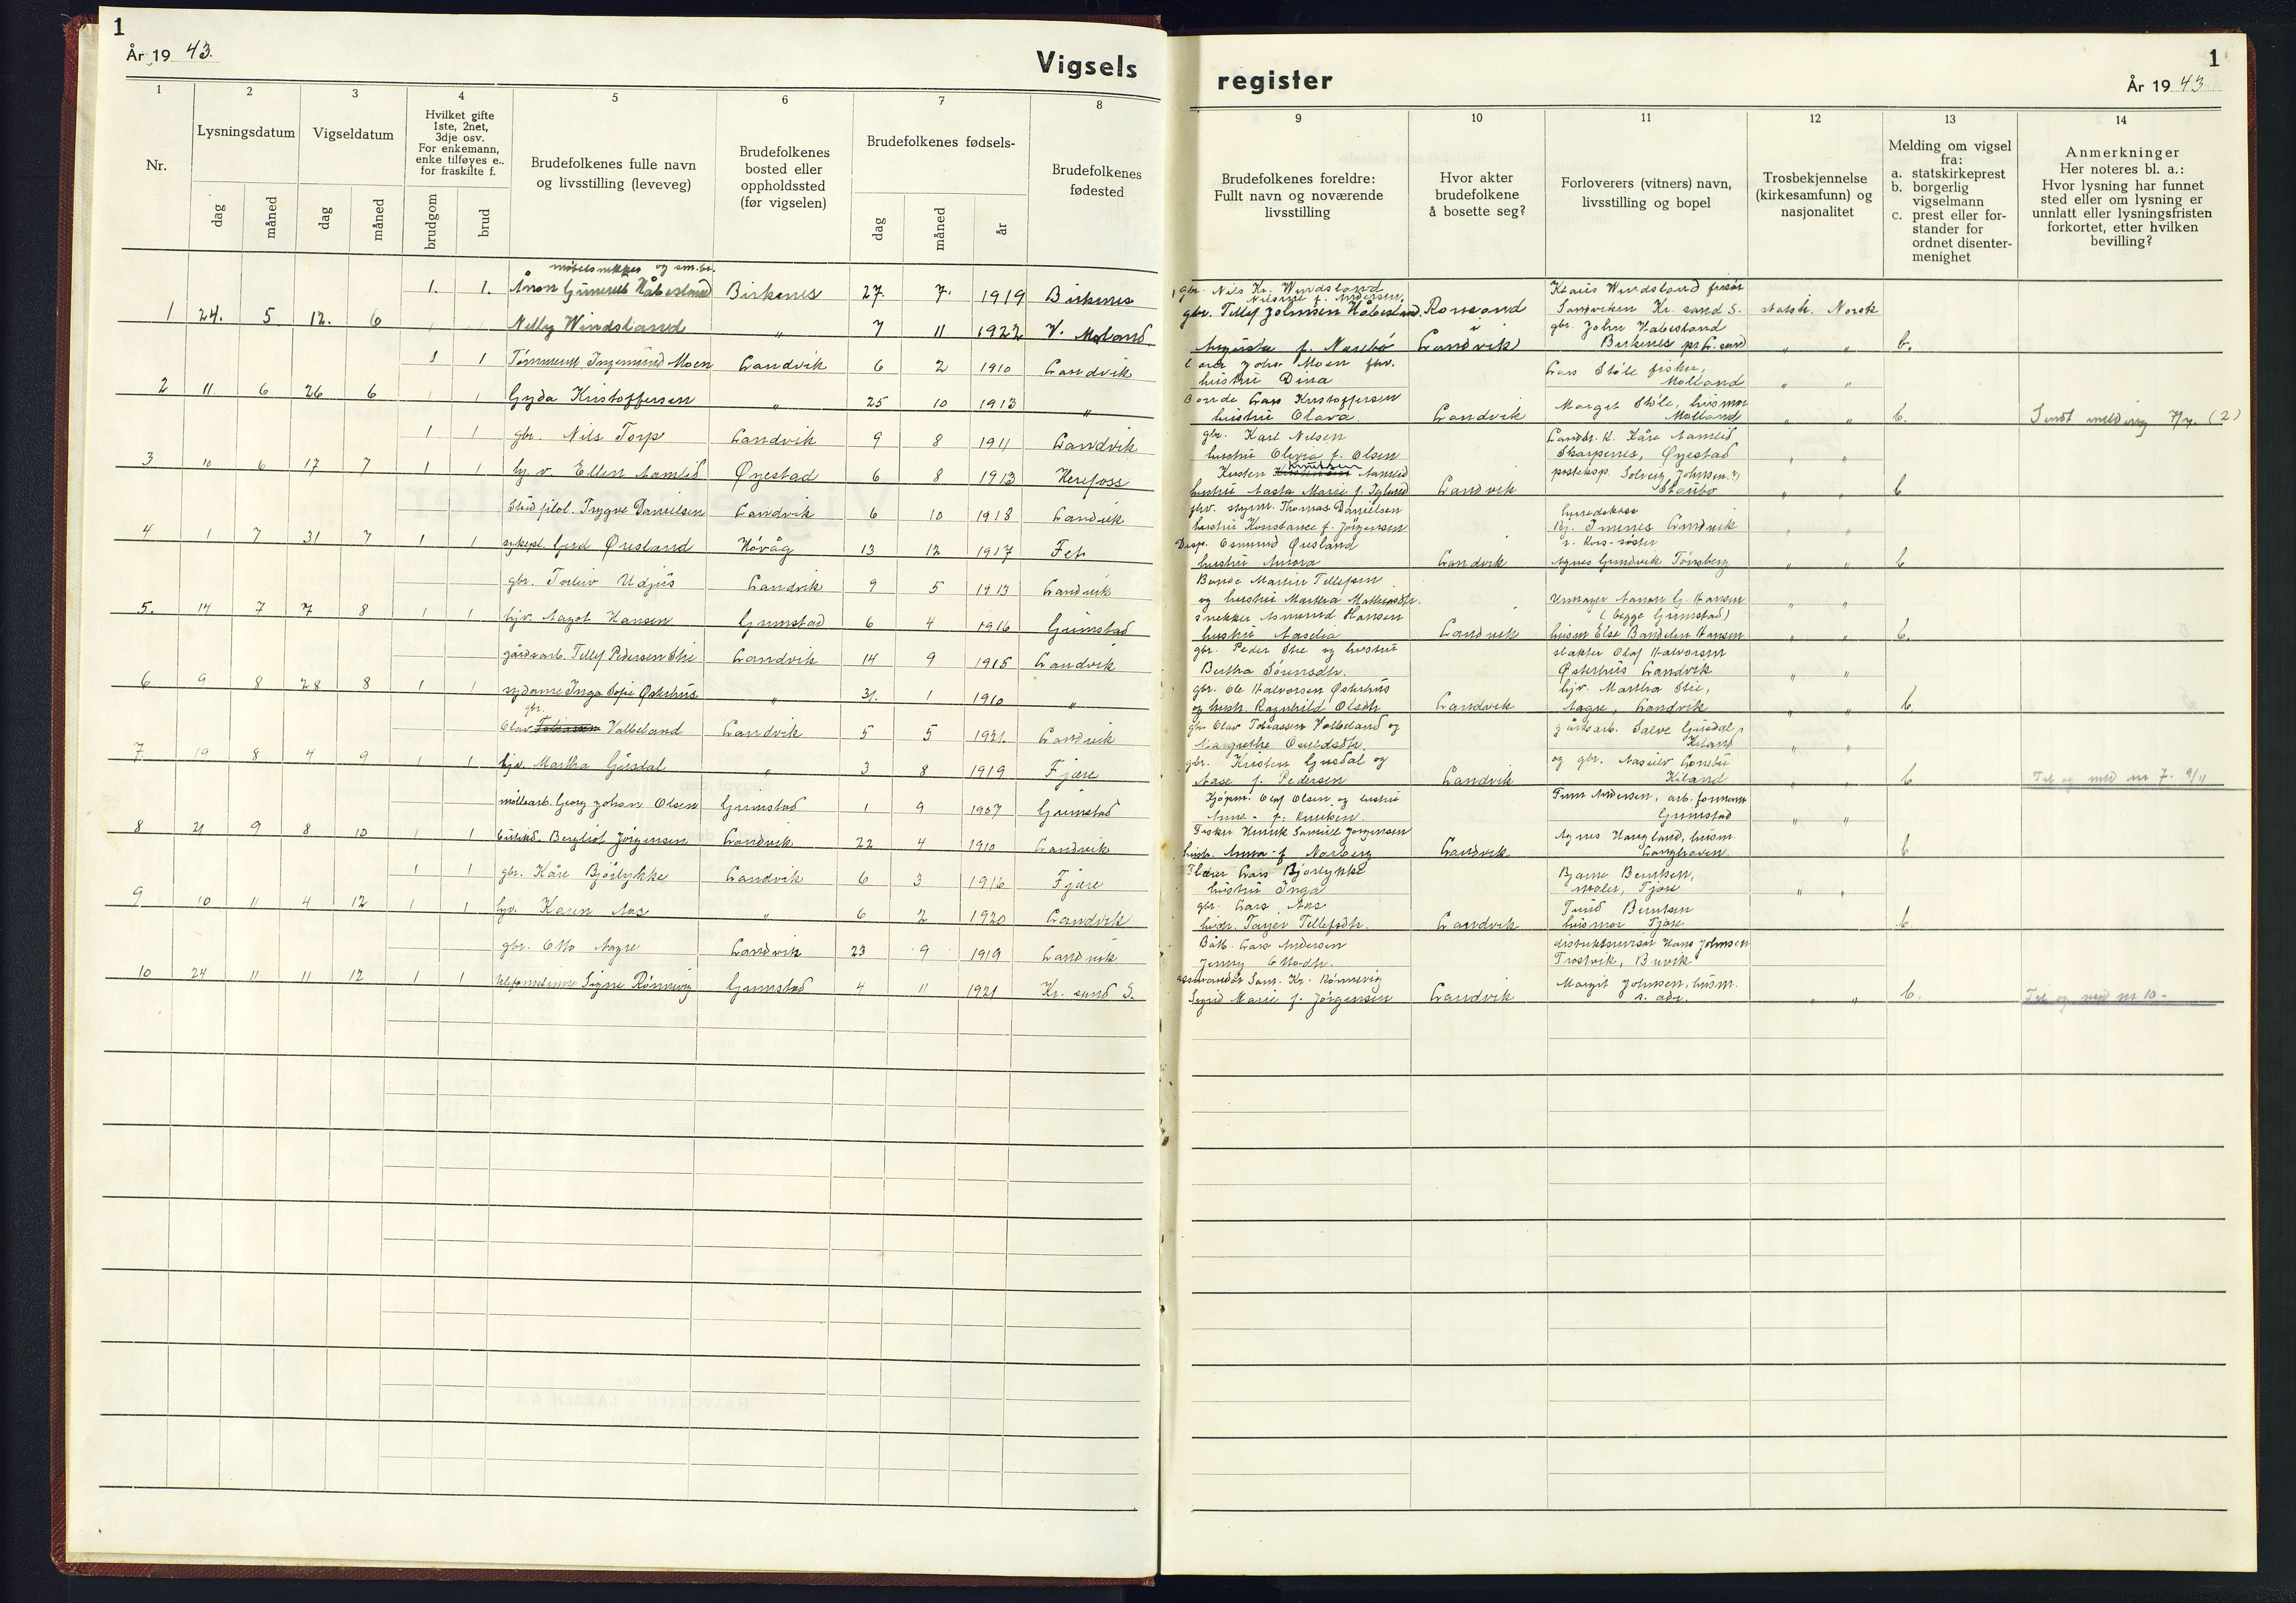 1
År 19 43.
Vigsels
1 2 3 4 5 6 7 8
Nr.
Lysningsdatum
Vigseldatum
Hvilket gifte
1ste, 2net,
3dje osv.
For enkemann,
enke tilføyes e..
for fraskilte f.
Brudefolkenes fulle navn
og livsstilling (leveveg)
Brudefolkenes
bosted eller
oppholdssted
(før vigselen)
Brudefolkenes fødsels-
Brudefolkenes
fødested
dag måned dag måned brudgom brud dag måned år
møbelsnekker og
1. 1. Ånon Håbesland Birkenes 27. 7. 1919 Birkenes
1 24. 5. 12. 6 Nelly Windsland " 7 11 1922 V. Moland.
1 1 Ingemund Moen Landvik 6 2 1910 Landvik
2 11. 6 26 6 1 1 Gyda Kristoffersen " 25 10 1913 "
1 1 gbr. Nils Torp Landvik 9 8 1911 Landvik
3 10 6 17 7 1 1 hj. v. Ellen Aamlid Øyestad 6 8 1913 Herefoss
Stud filol. Trygve Danielsen Landvik 6 10 1918 Landvik
4 1 7 31 7 1 1 sykepl. Gerd Øresland Høvåg 13 12 1917 Fet
gbr. Torleiv Udjus Landvik 9 5 1913 Landvik
5. 14 7 7 8 1 1 hjv. Aagot Hansen Grimstad 6 4 1916 Grimstad
gårdsarb. Tellef Pedersen Stie Landvik 14 9 1915 Landvik
6 9 8 28 8 1 1 sydame Inga Sofie Østerhus " 31. 1 1910 "
gbr.
Olav Tobiassen Valbeland Landvik 5 5 1921. Landvik
7. 19 8 4 9 1 1 hjv. Martha Gusdal " 3 8 1919 Fjære
møllearb. Georg Johan Olsen Grimstad 1 9 1907 Grimstad
8 21 9 8 10 1 1 Bergliot Jørgensen Landvik 22 4 1910 Landvik
1 1 gbr. Kåre Bjørlykke Landvik 6 3 1916 Fjære
9 10 11 4 12 1 1 hjv. Karen Aas " 6 2 1920 Landvik
gbr. Otto Aagre Landvik 23 9 1919 Landvik
10 24 11 11 12 1 1 telefonistinne Signe Rønnevig Grimstad 4 11 1921 Kr. sand S.
register
1
År 19 43
9 10 11 12 13 14
Brudefolkenes foreldre:
Fullt navn og noværende
livsstilling
Hvor akter
brudefolkene
å bosette seg?
Forloverers (vitners) navn,
livsstilling og bopel
Trosbekjennelse
(kirkesamfunn) og
nasjonalitet
Melding om vigsel
fra:
a. statskirkeprest
b. borgerlig
vigselmann
c. prest eller for-
stander for
ordnet disenter-
menighet
Anmerkninger
Her noteres bl. a.:
Hvor lysning har funnet
sted eller om lysning er
unnlatt eller lysningsfristen
forkortet, etter hvilken
bevilling?
gbr. Nils Kr. Windsland Klaus Windsland frisør
f. Andersen,
gbr. Tellef Johnsen Håbesland Sandviken Kr. sand S. statsk. Norsk
i gbr. John Habesland
Augusta f. Næsebø Landvik Birkenes pr L. sand " " b.
John Moen fhv. Lars Støle fisker,
hustru Dina Molland " "
Bonde Lars Kristoffersen Margit Støle, husmor
hustru Olava. Landvik Molland " " b. Sendt melding 7/7. (2)
gbr. Karl Nilsen Kåre Aamlid
hustru f. Olsen Skarpenes, Øyestad " "
Knutsen Aamlid posteksp. Solveig Johnsen
hustru Aasta Marie f. Igland Landvik Staubø " " b
fhv. styrm. Thomas Danielsen herredskass
hustru Konstance f. Jørgensen Bj. Imenes Landvik " "
Disp. Osmund Øresland r. Kors-søster
hustru Aurora Landvik Agnes Gundvik Tønsberg " " b
Bonde Martin Tellefsen
og hustru Martha Mathiasdtr. Urmager Aanon G. Hansen " "
snekker Asmund Hansen (begge Grimstad)
hustru Aaselia Landvik husm Else Bandelin Hansen " " b.
gbr. Peder Stie og hustru slakter Olaf Halvorsen
Bertha Sørensdtr. Østerhus Landvik " "
gbr. Ole Halvorsen Østerhus hjv. Martha Stie,
og hustr. Ragnhild Olsdtr Landvik Aagre, Landvik " " b
gbr Olav Tobiassen Valbeland og gårdsarb. Salve Gusdal,
Margrethe Osuldsdtr. Kiland " "
gbr. Kristen Gusdal og og gbr. Aasulv Lonebu
Aase f. Pedersen Landvik Kiland " " b Til og med nr 7. 9/11
Kjøpm. Olaf Olsen og hustru Andersen, arb. formann
Anne f. Knutsen. Grimstad " "
Fisker Henrik Samuel Jørgensen Agnes Haugland, husm.
hustr. Anna f Norberg Landvik b
Lars Bjørlykke Bjarne Berntsen,
hustru Inga maler, Fjære " "
gbr. Lars Aas Berntsen
hustr. Tarjer Tellefsdtr. Landvik husmor Fjære b
Båtb. Lars Andersen distriktsrevisor Hans Johnsen
Jenny Ottosdtr. Trosvik, Buvik
assurandør Sam. Kr. Rønnevig Margit Johnsen, husm.
Sigrid Marie f. Jørgensen Landvik s. adr. " " b. Til og med nr 10-